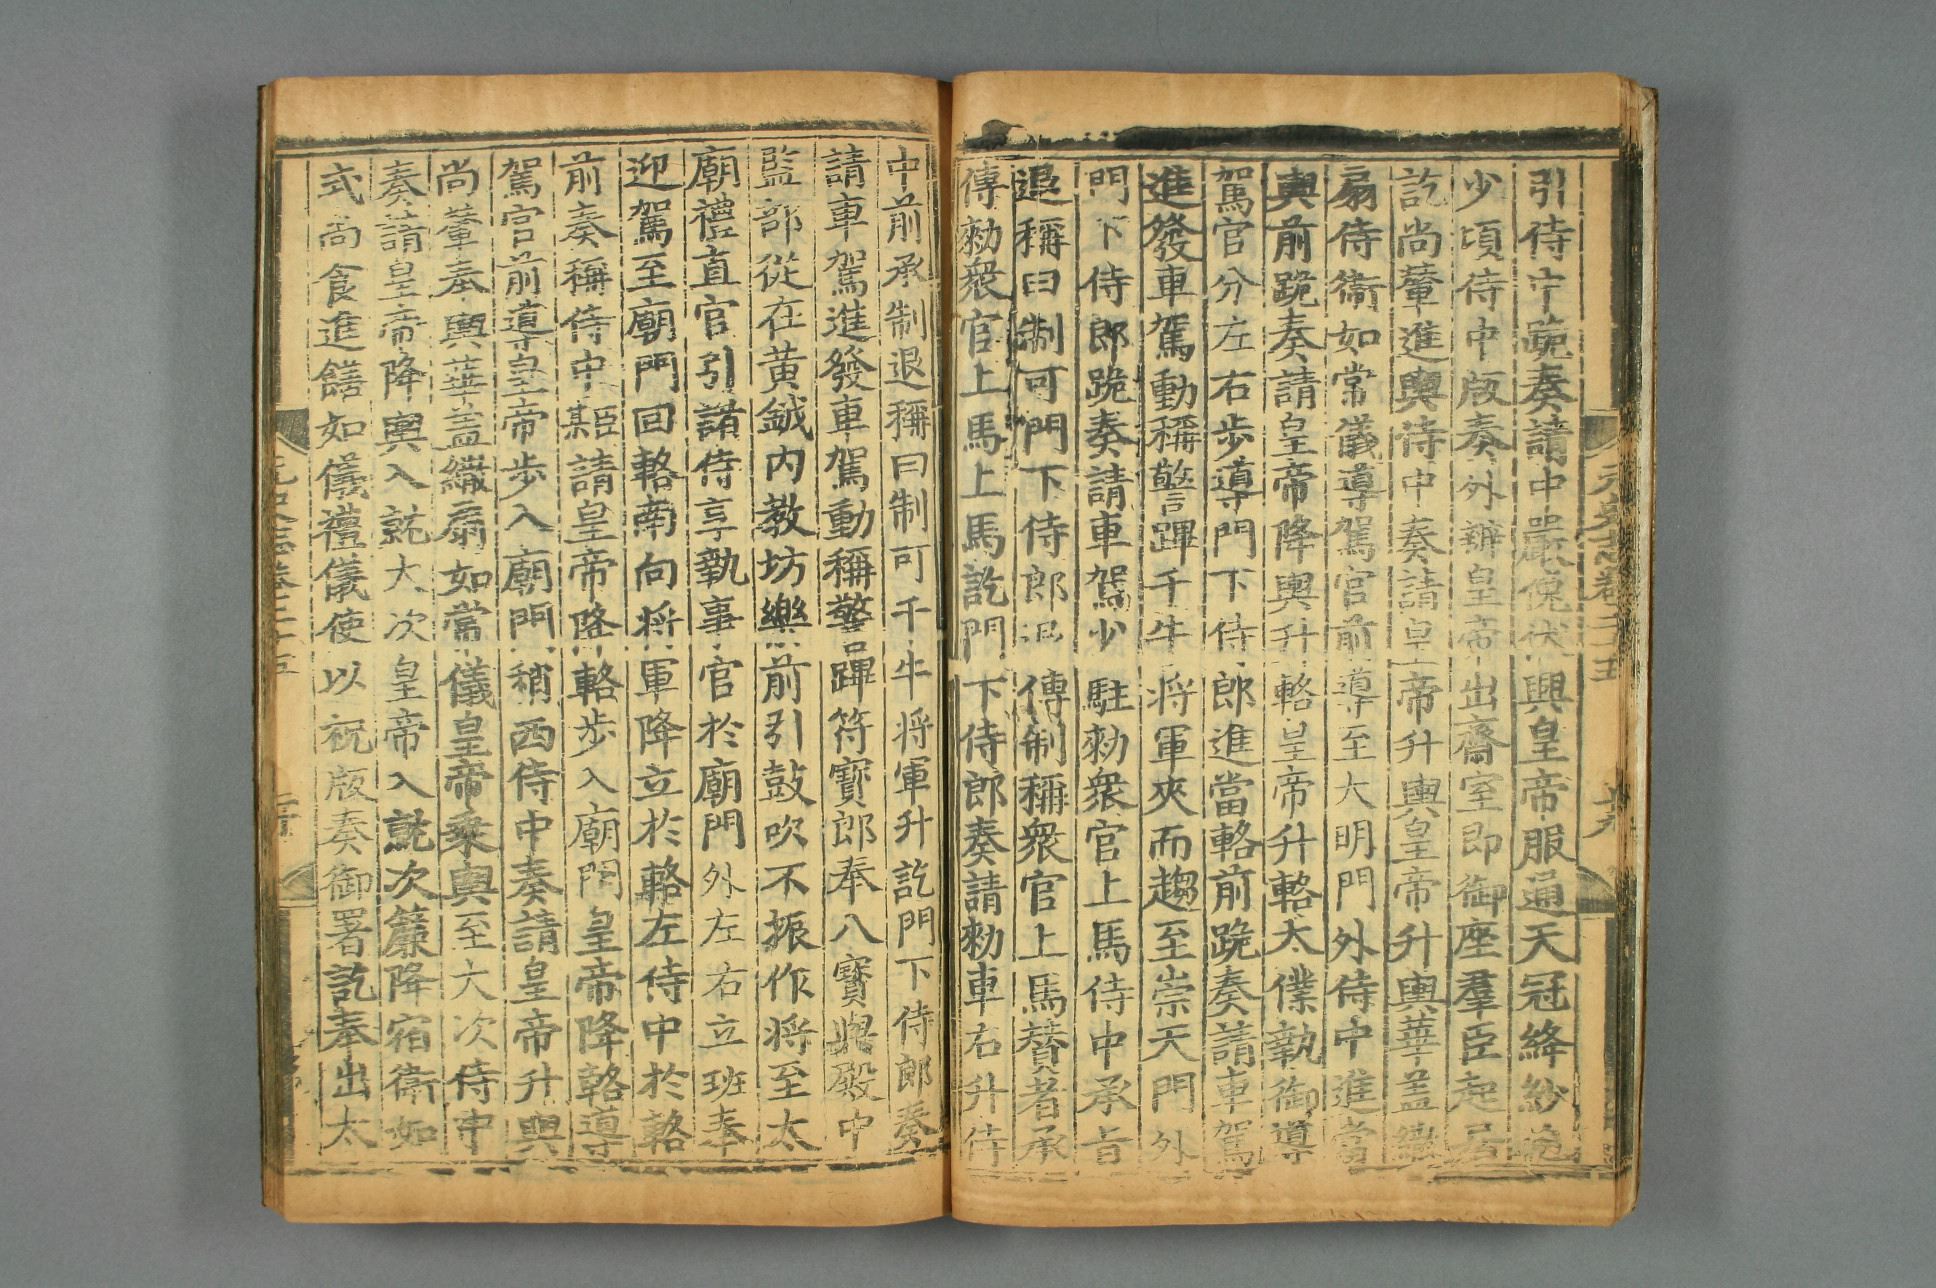 引侍中菀奏請中嚴俛伏興皇帝服通天冠絳紗袍
少頃侍中版奏外辦皇帝出齋室即御座羣臣起居
訖尚輦進輿侍中奏請皇帝升輿皇帝升輿華盖繖
扇侍衞如常儀導駕官前導至大明門外侍中進當
輿前跪奏請皇帝降輿升輅皇帝升輅太僕執御導
駕官分左右步導門下侍郎進當輅前跪奏請車駕
進發車駕動稱警蹕千牛將軍夾而趨至崇天門外
門下侍郎跪奏請車駕少駐勑衆官上馬侍中承旨
退稱曰制可門下侍郎退傳制稱衆官上馬賛者承
傳勑衆官上馬上馬訖門下侍郎奏請勑車右升侍
中前承制退稱曰制可千牛将軍升訖門下侍郎奏
請車駕進發車駕動稱警蹕符寳郎奉八寳與殿中
監部從在黄鉞内教坊樂前引鼓吹不振作将至太
廟禮直官引諸侍享執事官於廟門外左右立班奉
迎駕至廟門回輅南向将軍降立於輅左侍中於輅
前奏稱侍中臣某請皇帝降輅步入廟門皇帝降輅導
駕官前導皇帝步入廟門稍西侍中奏請皇帝升輿
尚輦奉輿華盖繖扇如常儀皇帝乘輿至大次侍中
奏請皇帝降輿入就大次皇帝入就次簾降宿衞如
式尚食進饍如儀禮儀使以祝版奏御署訖奉出太